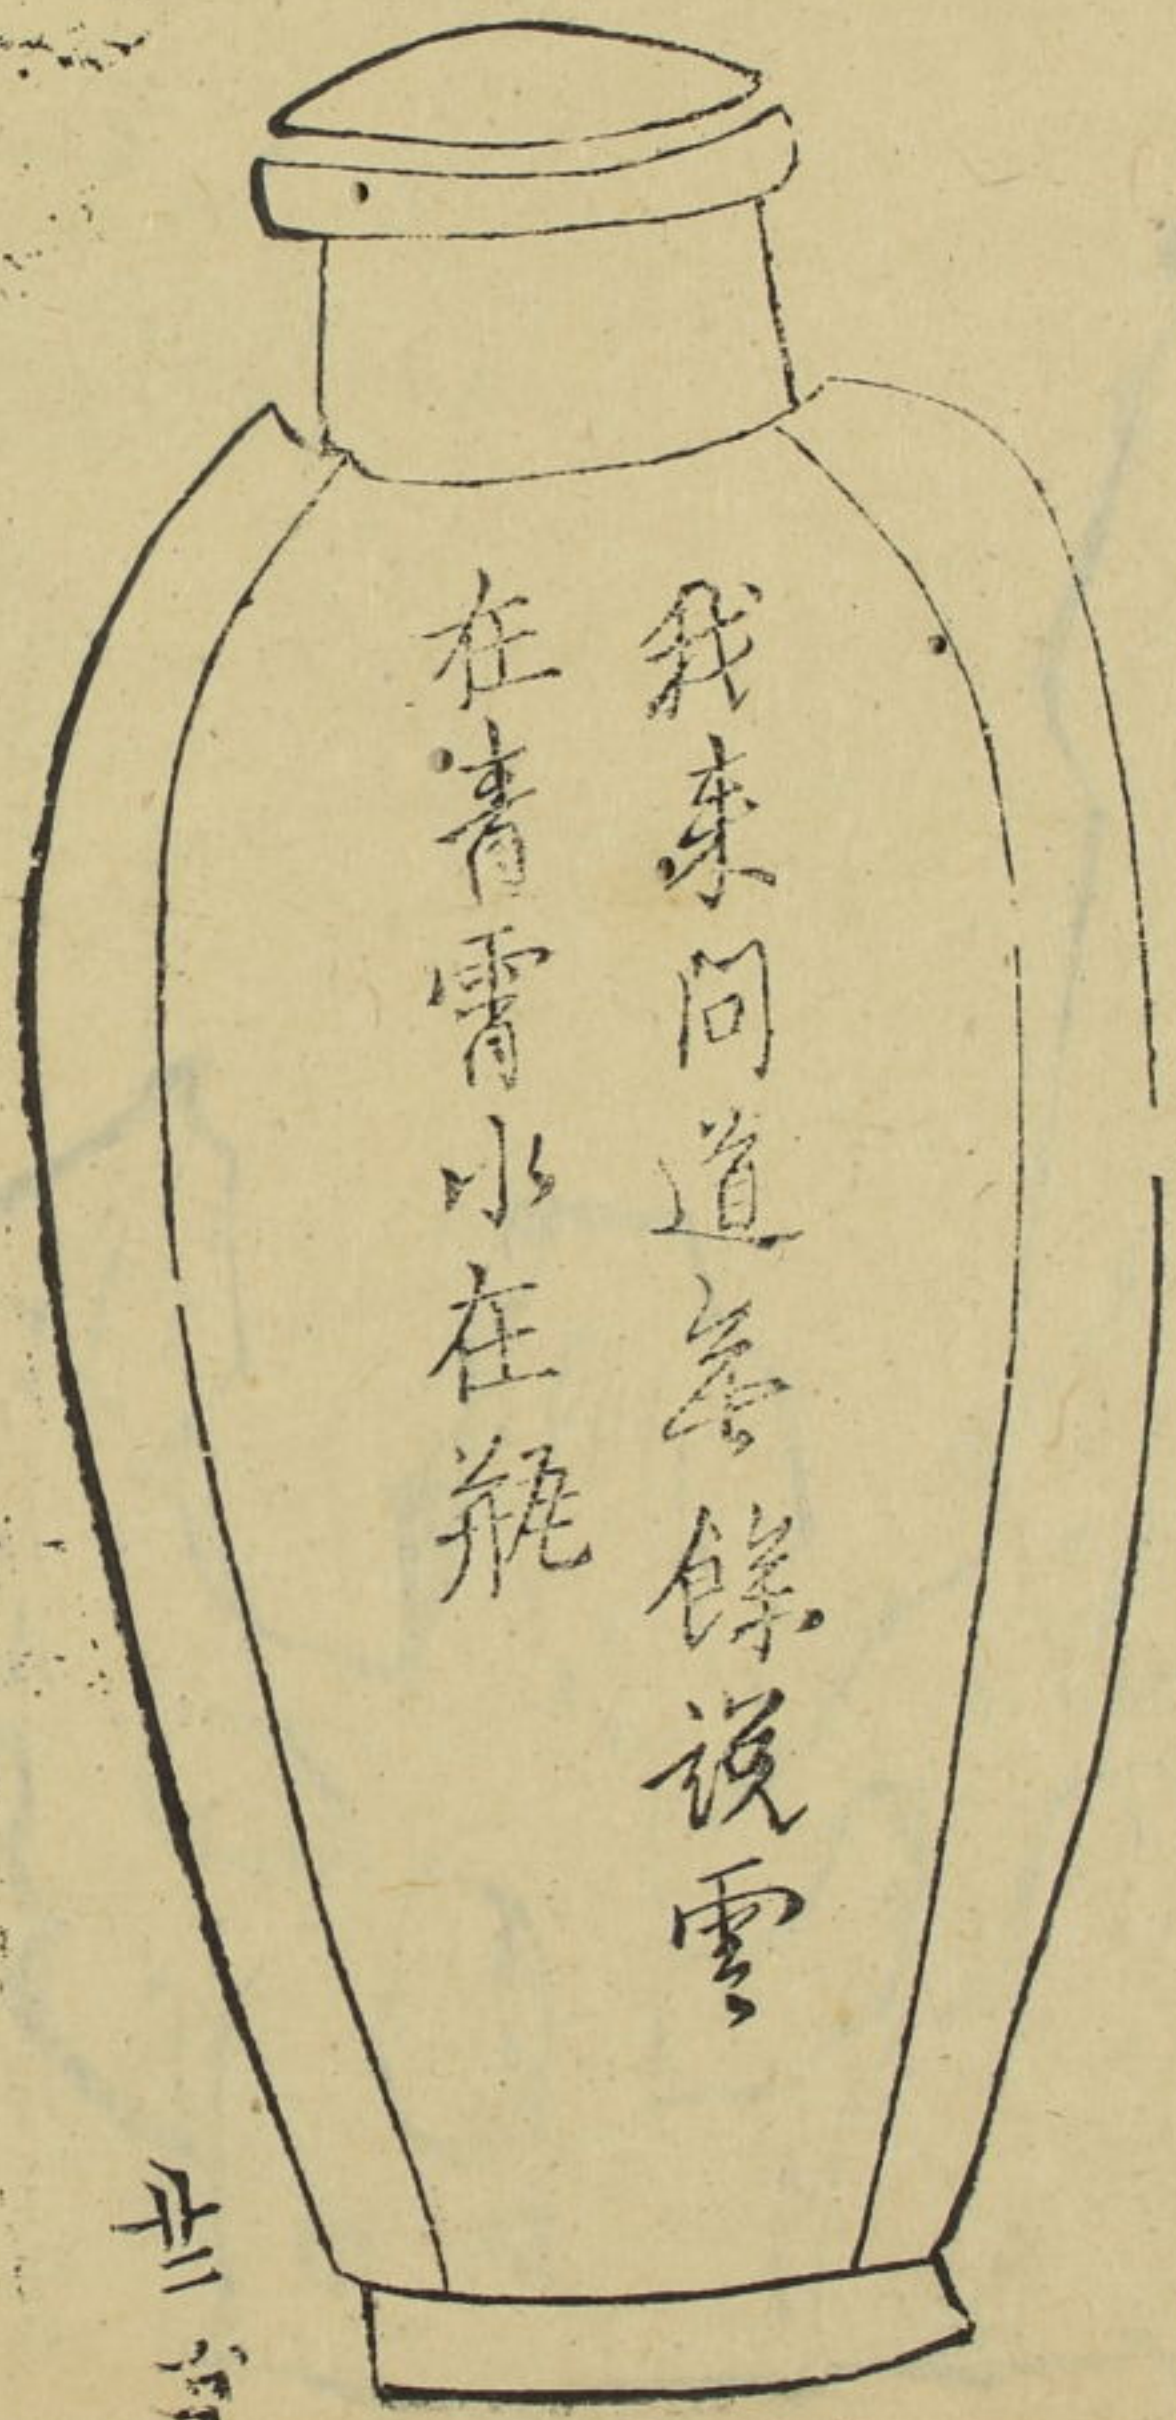 我来問道無餘説雲
在青霄水在瓶
廿二